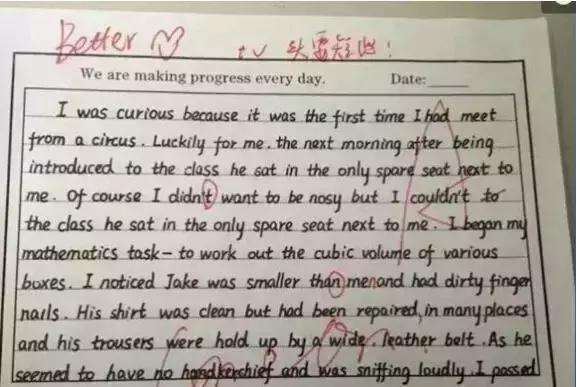 Better
We are making progress every day. Date:
I was curious because it was the first time I had meet
from a circus. Luckily for me. the next morning after being
introduced to the class he sat in the only spare seat next to
me. Of course I didn't want to be nosy but I couldn't to
the class he sat in the only spare seat next to me. I began my
mathematics task- to work out the cubic volume of various
boxes. I noticed Jake was smaller than menand had dirty finger
nails. His shirt was clean but had been repaired, in many places
and his trousers were hold up by a wide, leather belt. As he
seemed to have no handkerchief and was sniffing loudly. I passed